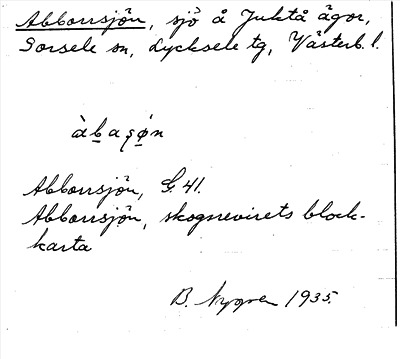 Abborrsjön, sjö å Juktå ägor,
Sorsele sn, Lycksele tg, Västerb. l.
àbaʂø̀n
Abborrsjön, G. 41.
Abborrsjön, skogsrevirets block-
karta
B. Nygren 1935.